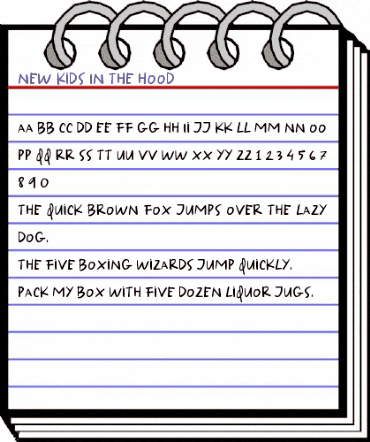 NEW KIDS IN THE HOOD
AA BB CC DD EE FF GG HH II JJ KK LL MM NN OO
PP QQ RR SS TT UU VV WW XX YY ZZ 1 2 3 4 5 6 7
8 9 0
THE QUICK BROWN FOX JUMPS OVER THE LAZY
DOG.
THE FIVE BOXING WIZARDS JUMP QUICKLY.
PACK MY BOX WITH FIVE DOZEN LIQUOR JUGS.